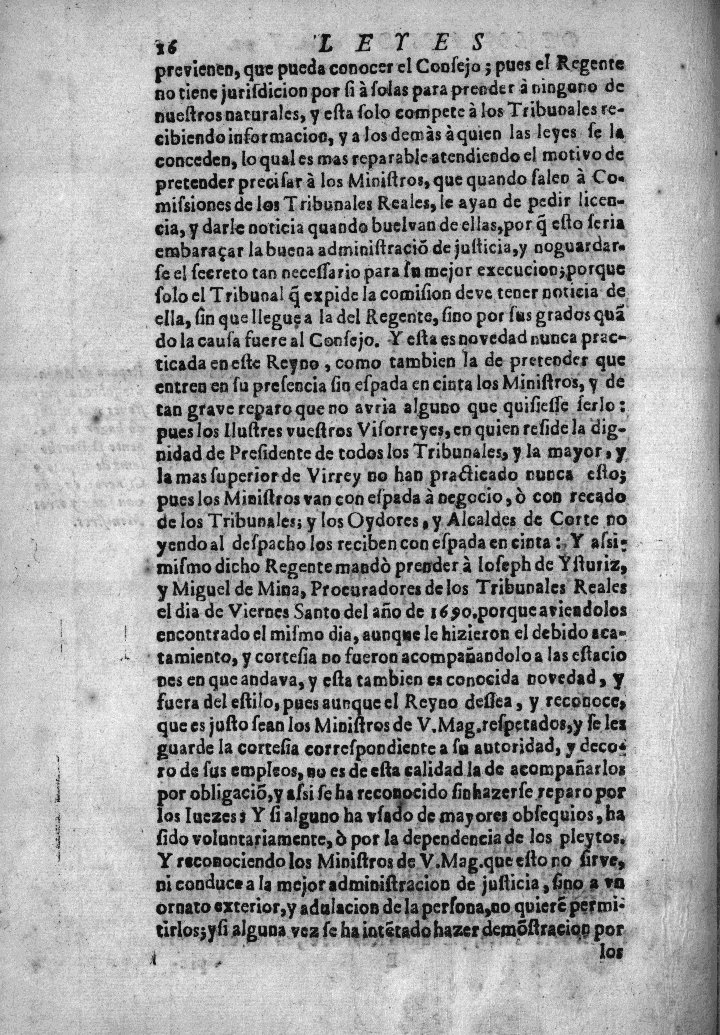 16 LEYES
previenen, que pueda conocer el Conſejo; pues el Regente
no tiene juriſdicion por ſi à ſolas para prender à ninguno de
nueſtros naturales, y eſta ſolo compete à los Tribunales re-
cibiendo informacion, y a los demàs à quien las leyes ſe la
conceden, lo qual es mas reparable atendiendo el motivo de
pretender preciſar à los Miniſtros, que quando ſalen à Co-
miſsiones de los Tribunales Reales, le ayan de pedir licen-
cia, y darle noticia quando buelvan de ellas, por q̃ eſto ſeria
embaraçar la buena adminiſtraciõ de juſticia, y noguardar-
ſe el ſecreto tan neceſſario para ſu mejor execucion; porque
ſolo el Tribunal q̃ expide la comiſion deve tener noticia de
ella, ſin que llegue a la del Regente, ſino por ſus grados quã
do la cauſa fuere al Conſejo. Y eſta es novedad nunca prac-
ticada en eſte Reyno, como tambien la de pretender que
entren en ſu preſencia ſin eſpada en cinta los Miniſtros, y de
tan grave reparo que no avria alguno que quiſieſſe ſerlo:
pues los Iluſtres vueſtros Viſorreyes, en quien reſide la dig-
nidad de Preſidente de todos los Tribunales, y la mayor, y
la mas ſuperior de Virrey no han practicado nunca eſto;
pues los Miniſtros van con eſpada à negocio, ò con recado
de los Tribunales; y los Oydores, y Alcaldes de Corte no
yendo al deſpacho los reciben con eſpada en cinta: Y aſsi-
miſmo dicho Regente mandò prender à Ioſeph de Yſturiz,
y Miguel de Mina, Procuradores de los Tribunales Reales
el dia de Viernes Santo del año de 1690. porque aviendolos
encontrado el miſmo dia, aunque le hizieron el debido aca-
tamiento, y corteſia no fueron acompañandolo a las eſtacio
nes en que andava, y eſta tambien es conocida novedad, y
fuera del eſtilo, pues aunque el Reyno deſſea, y reconoce,
que es juſto ſean los Miniſtros de V. Mag. reſpetados, y ſe les
guarde la corteſia correſpondiente a ſu autoridad, y deco-
ro de ſus empleos, no es de eſta calidad la de acompañarlos
por obligaciõ, y aſsi ſe ha reconocido ſin hazerſe reparo por
los Iuezes: Y ſi alguno ha vſado de mayores obſequios, ha
ſido voluntariamente, ò por la dependencia de los pleytos.
Y reconociendo los Miniſtros de V. Mag. que eſto no ſirve,
ni conduce a la mejor adminiſtracion de juſticia, ſino a vn
ornato exterior, y adulacion de la perſona, no quierẽ permi-
tirlos; y ſi alguna vez ſe ha intẽtado hazer demõſtracion por
los